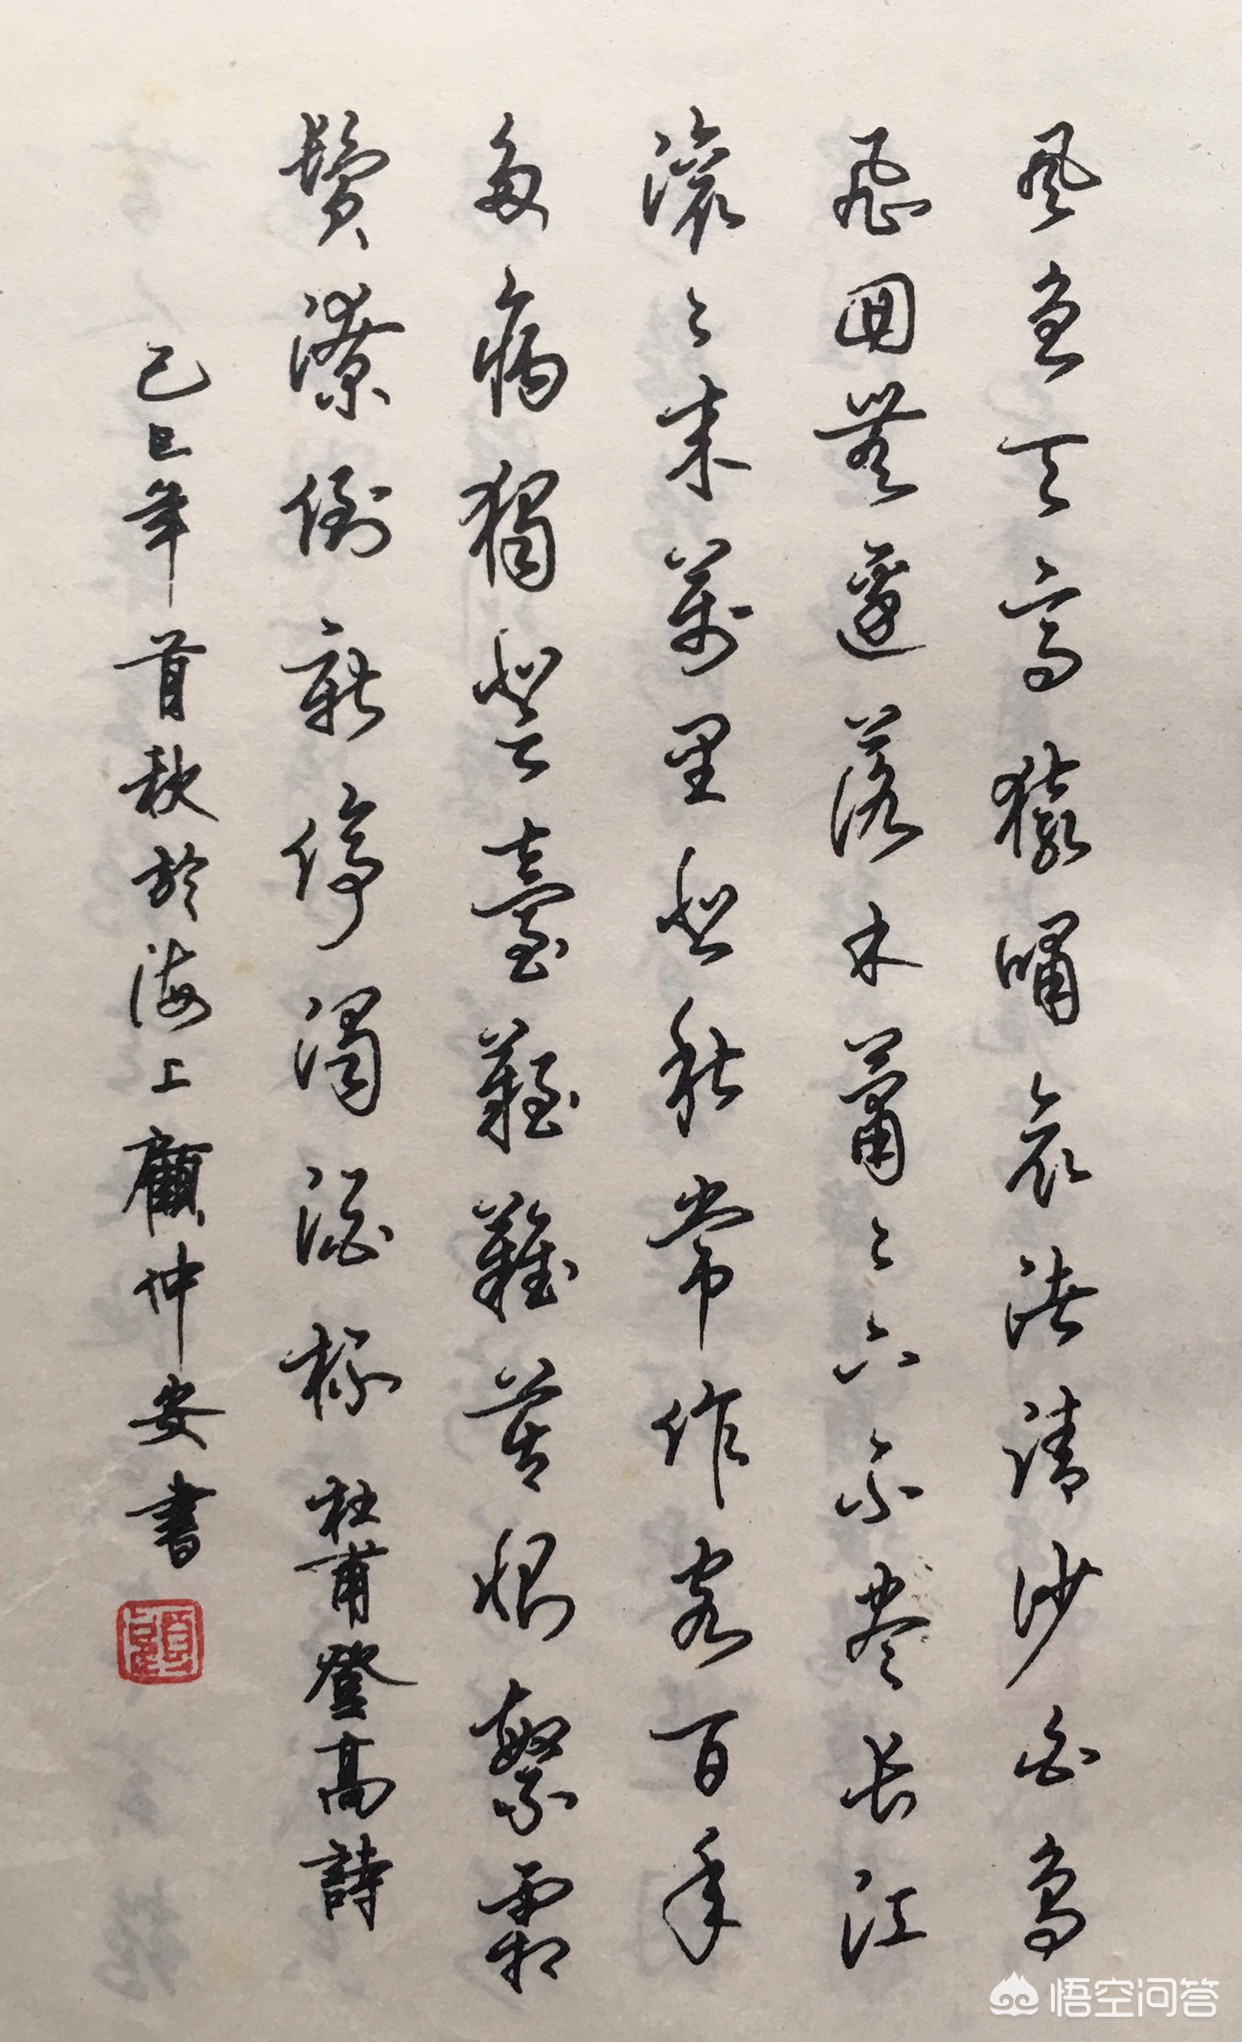 風急天高猿嘯哀渚清沙白鳥
飛囬無邊落木蕭〻下不盡長江
滾〻來萬里悲秋常作客百年
多病獨登臺艱難苦恨繁霜
鬢潦倒新停濁酒杯 杜甫登高詩
己巳年首秋於海上顧仲安書
悟空问答